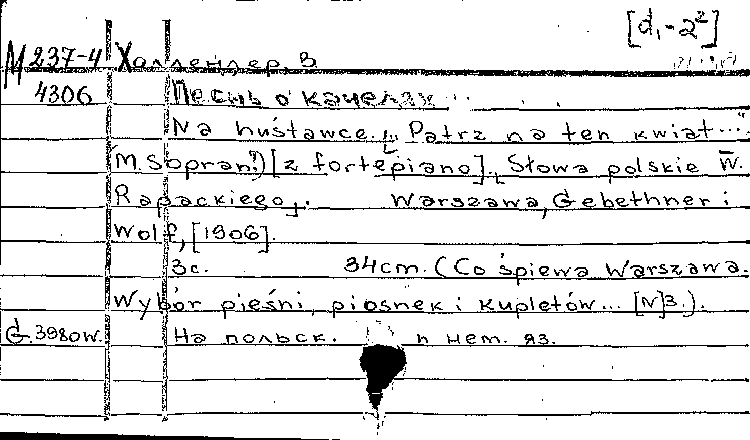 [d₁-2²]
М 237-4 Холлендер, В
4306 Песнь о качелях
Na huśtawce. „Patrz na ten kwiat..."
(M. Sopran?) [z fortepiano]. Słowa polskie W.
Rapackiego. Warszawa, Gebethner i
Wolf, [1906].
3с. 34cm. (Co śpiewa Warszawa.
Wybór pieśni, piosnek i kupletów... [N]3.).
G. 3980 W. На польск. и нем. яз.